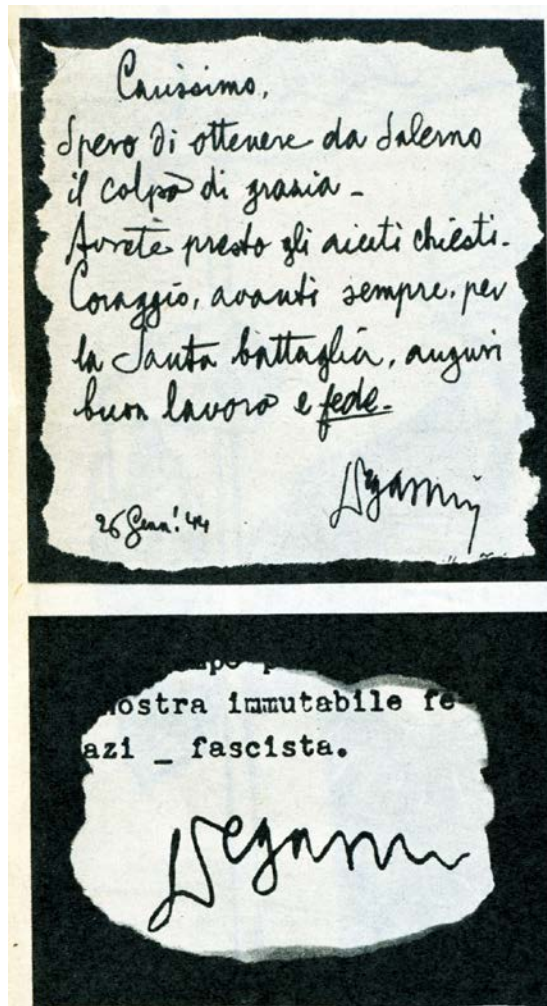 Carissimo,
Spero di ottenere da Salerno
il colpo di grazia -
Avrete presto gli aiuti chiesti.
Coraggio, avanti sempre, per
la Santa battaglia, auguri
buon lavoro e fede.
26 Genn! 44
nostra immutabile fe
azi _ fascista.